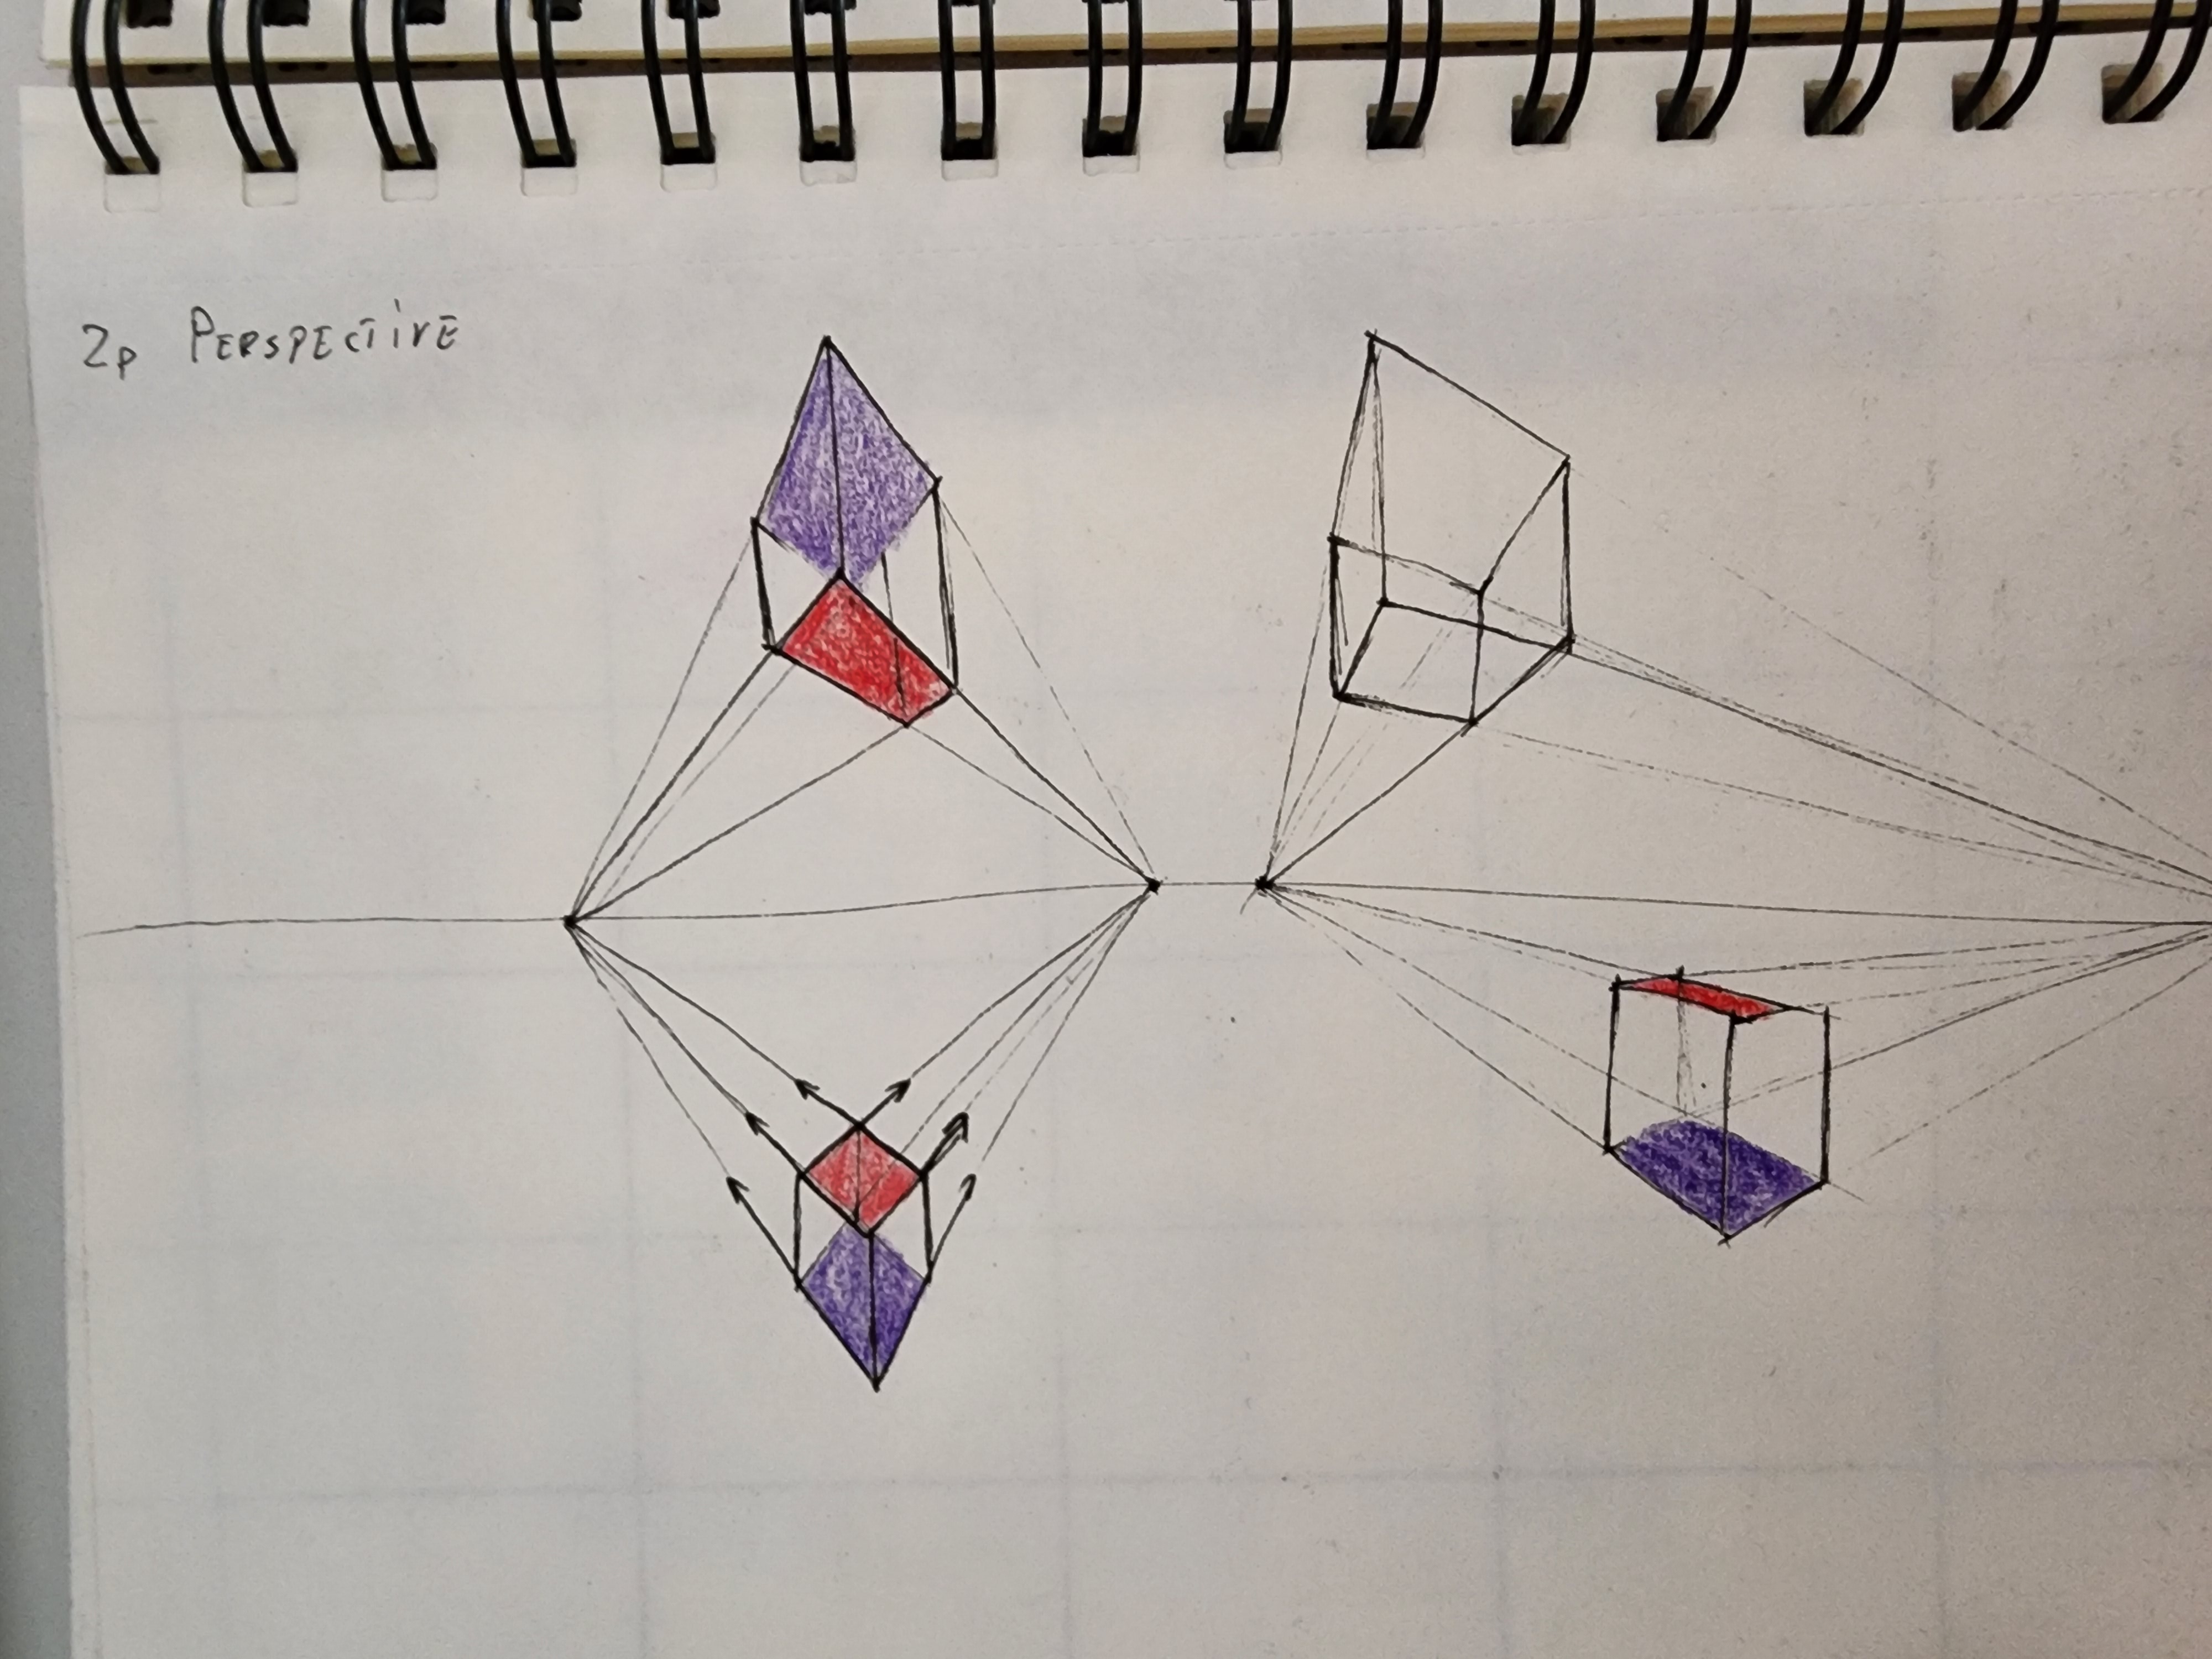 2p PERSPECTiVE